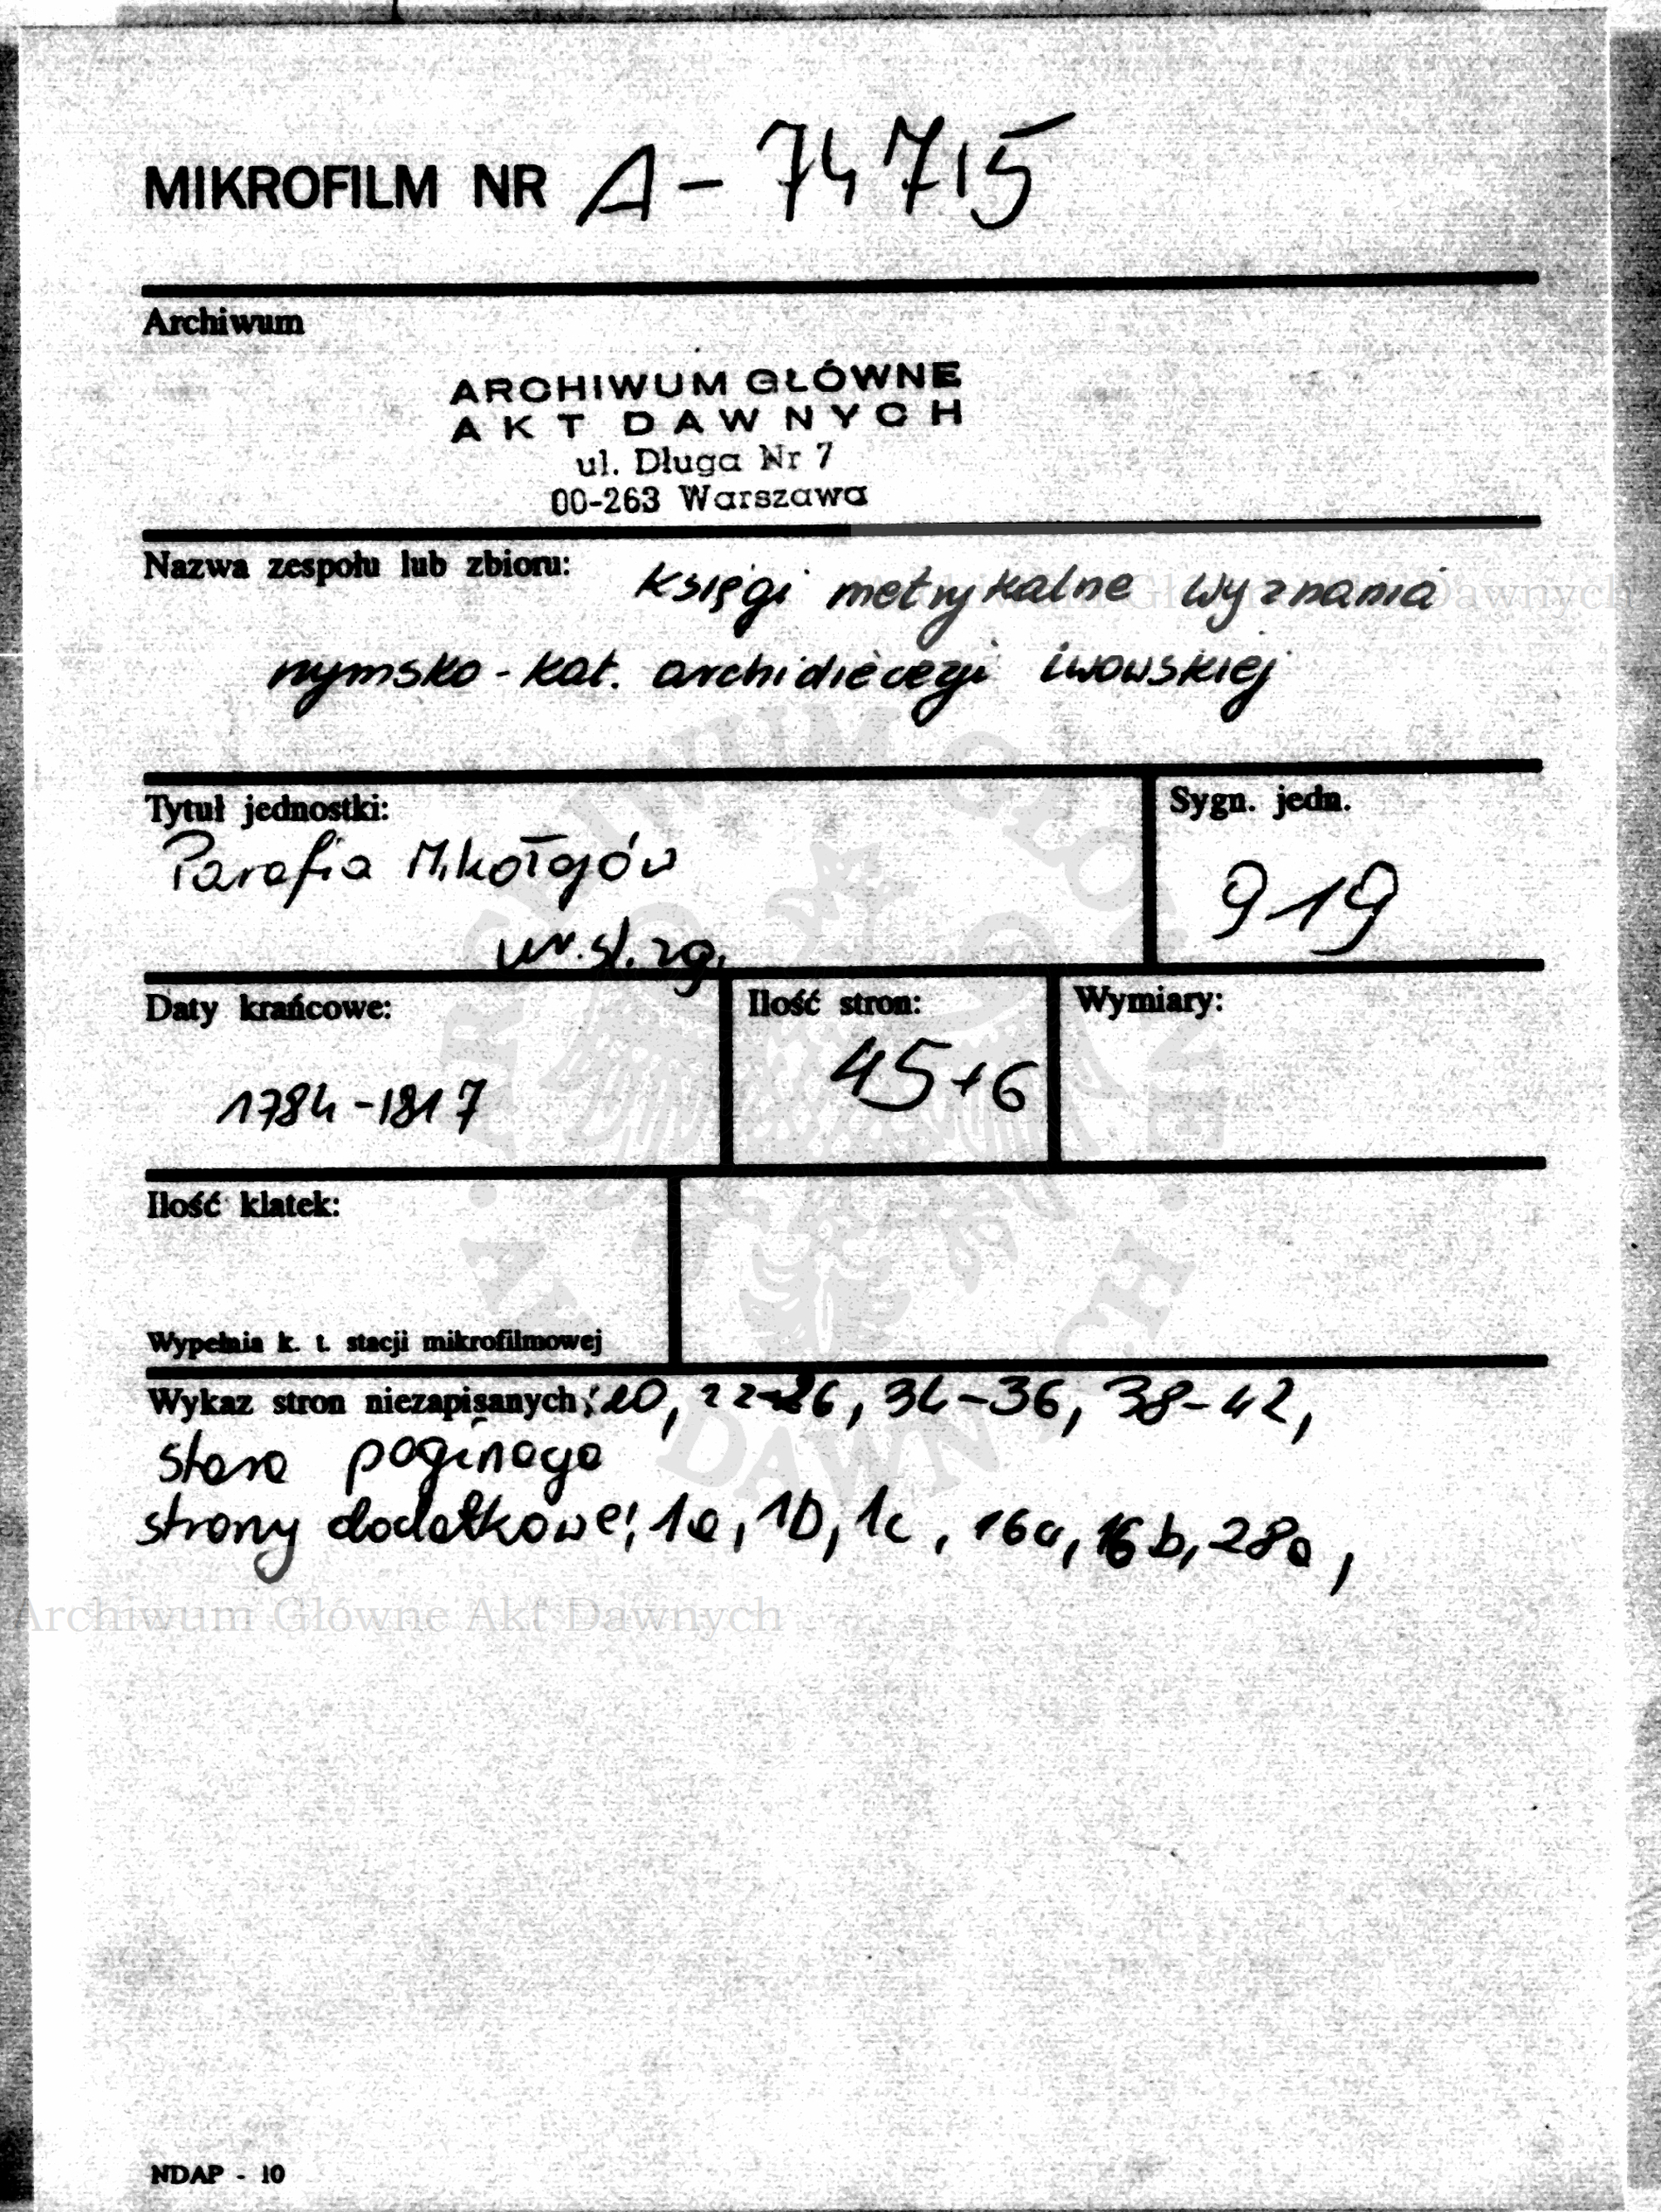 MIKROFILM NR A-74715
Archiwum
ARCHIWUM GŁÓWNE
AKT DAWNYCH
ul. Długa Nr 7
00-263 Warszawa
Nazwa zespołu lub zbioru: Księgi metrykalne wyznania
rzymsko-kat. archidiecezji lwowskiej
Tytuł jednostki:
Parafia Mikołajów
ur. śl. zg.
Sygn. jedn.
919
Daty krańcowe:
1784-1817
Ilość stron:
45+6
Wymiary:
Ilość klatek:
Wypełnia k. t. stacji mikrofilmowej
Wykaz stron niezapisanych: 20, 22-26, 34-36, 38-42,
stara paginacja
strony dodatkowe: 1a, 1b, 1c, 16a, 16b, 28a,
Archiwum Główne Akt Dawnych
NDAP - 10